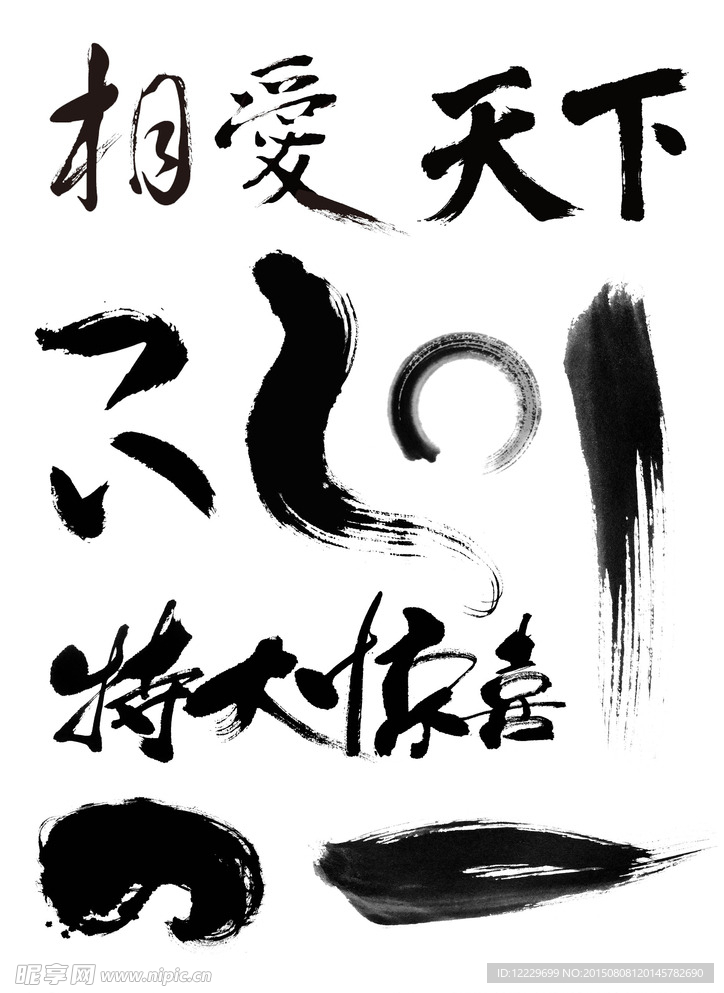 相愛 天下
特大惊喜
昵享网 www.nipic.cn
ID:12229699 NO:20150808120145782690